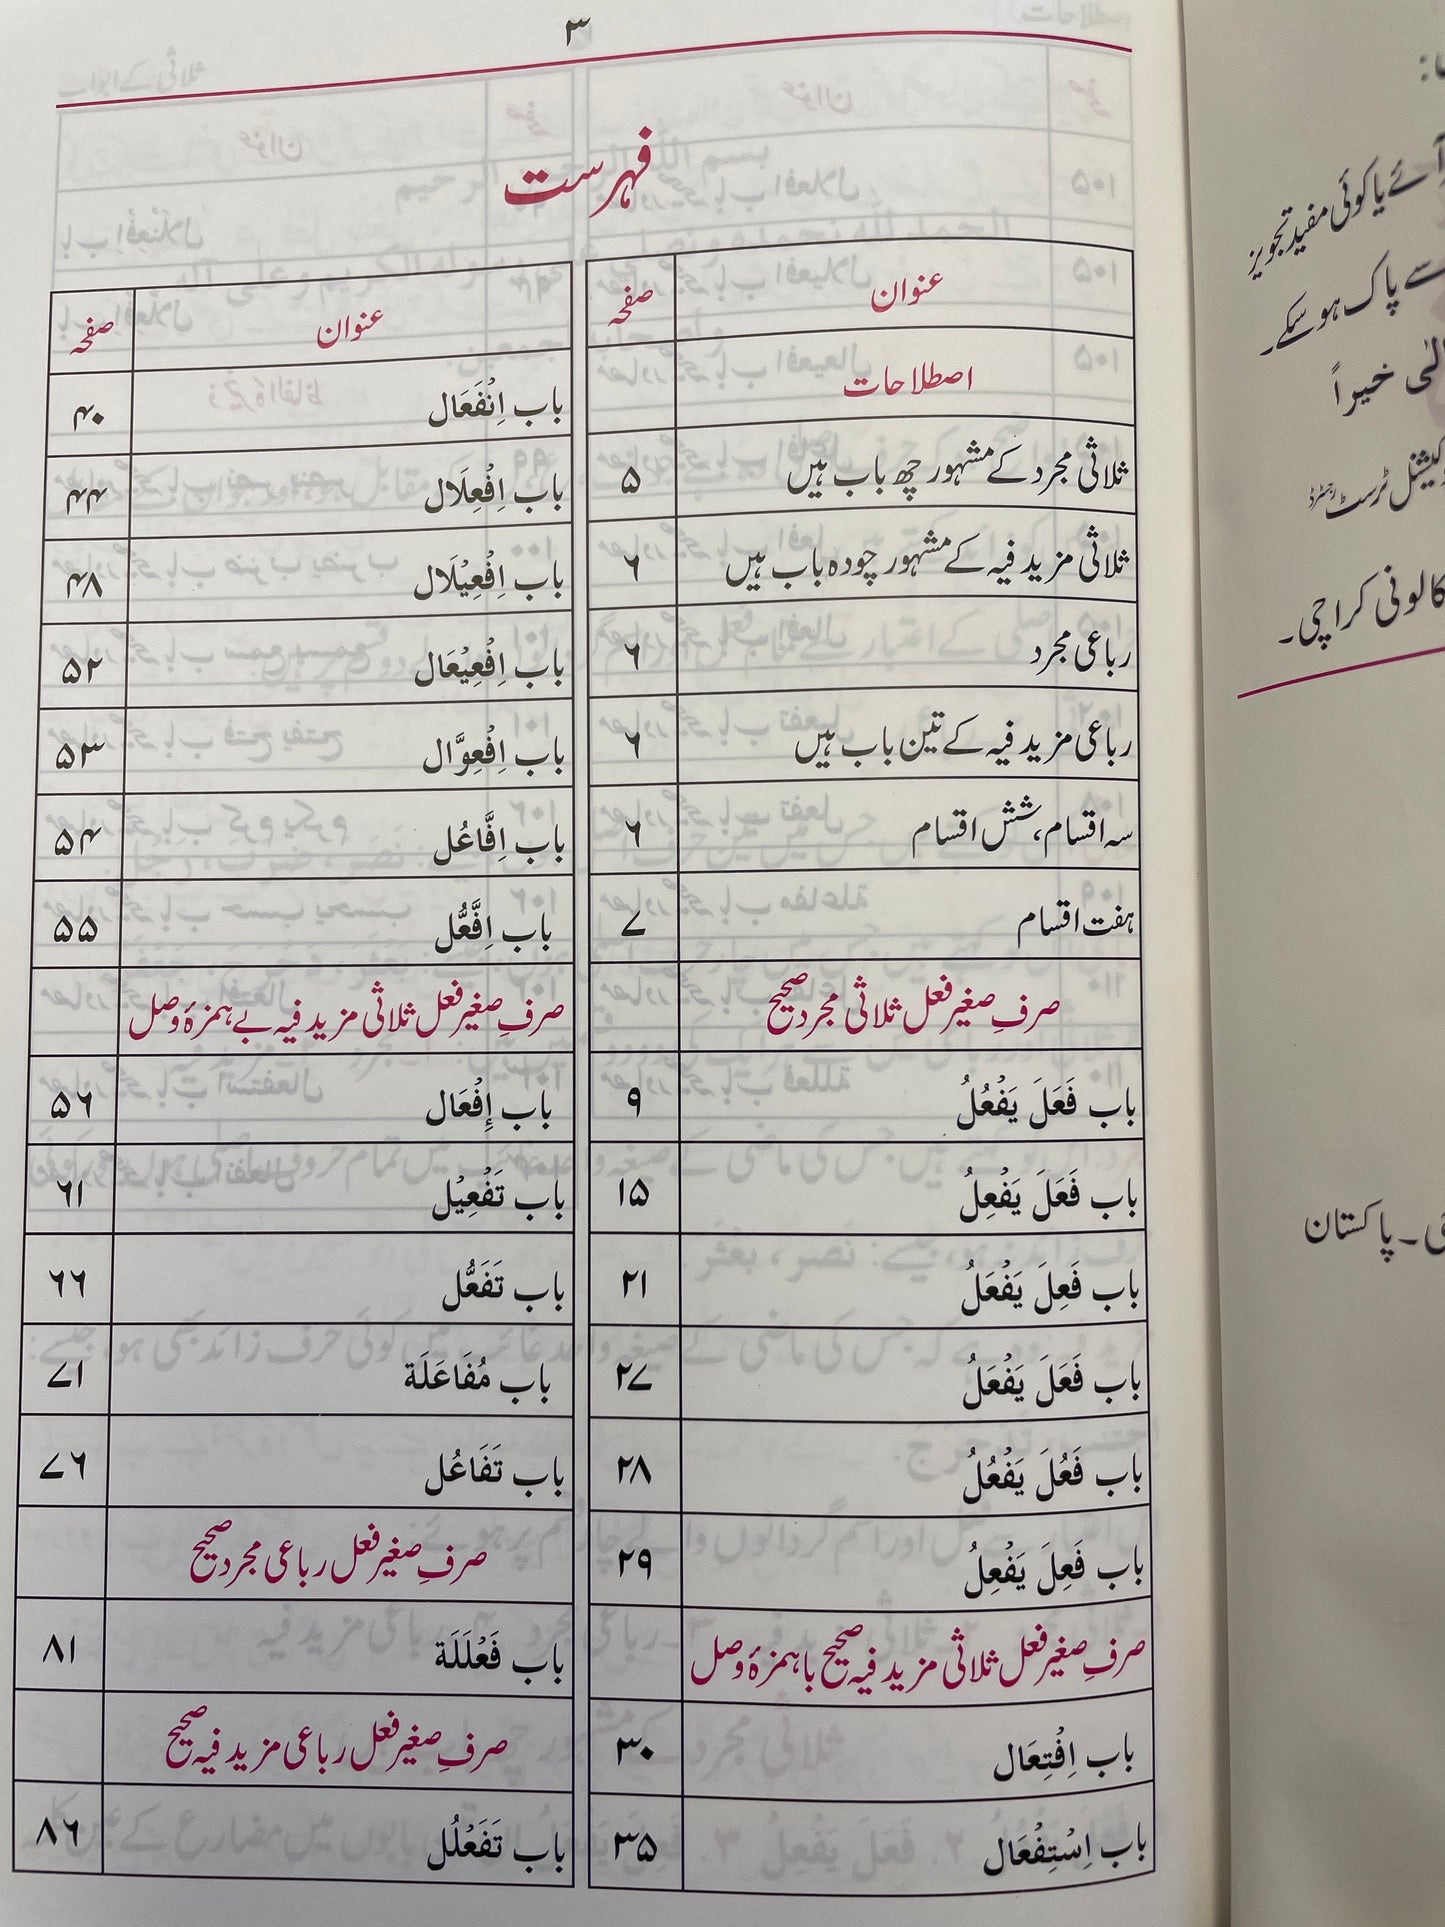 ۳
فہرست
عنوان صفحہ
اصطلاحات
ثلاثی مجرد کے مشہور چھ باب ہیں ۵
ثلاثی مزید فیہ کے مشہور چودہ باب ہیں ۶
رباعی مجرد ۶
رباعی مزید فیہ کے تین باب ہیں ۶
سہ اقسام، شش اقسام ۶
ہفت اقسام ۷
صرفِ صغیر فعل ثلاثی مجرد صحیح
باب فَعَلَ يَفْعُلُ ۹
باب فَعَلَ يَفْعِلُ ۱۵
باب فَعِلَ يَفْعَلُ ۲۱
باب فَعَلَ يَفْعَلُ ۲۷
باب فَعُلَ يَفْعُلُ ۲۸
باب فَعِلَ يَفْعِلُ ۲۹
صرفِ صغیر فعل ثلاثی مزید فیہ صحیح با ہمزۂ وصل
باب اِفْتِعَال ۳۰
باب اِسْتِفْعَال ۳۵
عنوان صفحہ
باب اِنْفَعَال ۴۰
باب اِفْعِلَال ۴۴
باب اِفْعِيْلَال ۴۸
باب اِفْعِيْعَال ۵۲
باب اِفْعِوَّال ۵۳
باب اِفَّاعُل ۵۴
باب اِفَّعُّل ۵۵
صرفِ صغیر فعل ثلاثی مزید فیہ بے ہمزۂ وصل
باب إِفْعَال ۵۶
باب تَفْعِيْل ۶۱
باب تَفَعُّل ۶۶
باب مُفَاعَلَة ۷۱
باب تَفَاعُل ۷۶
صرفِ صغیر فعل رباعی مجرد صحیح
باب فَعْلَلَة ۸۱
صرفِ صغیر فعل رباعی مزید فیہ صحیح
باب تَفَعْلُل ۸۶
آئے یا کوئی مفید تجویز
سے پاک ہو سکے۔
خیراً
ٹرسٹ
کالونی کراچی۔
پاکستان